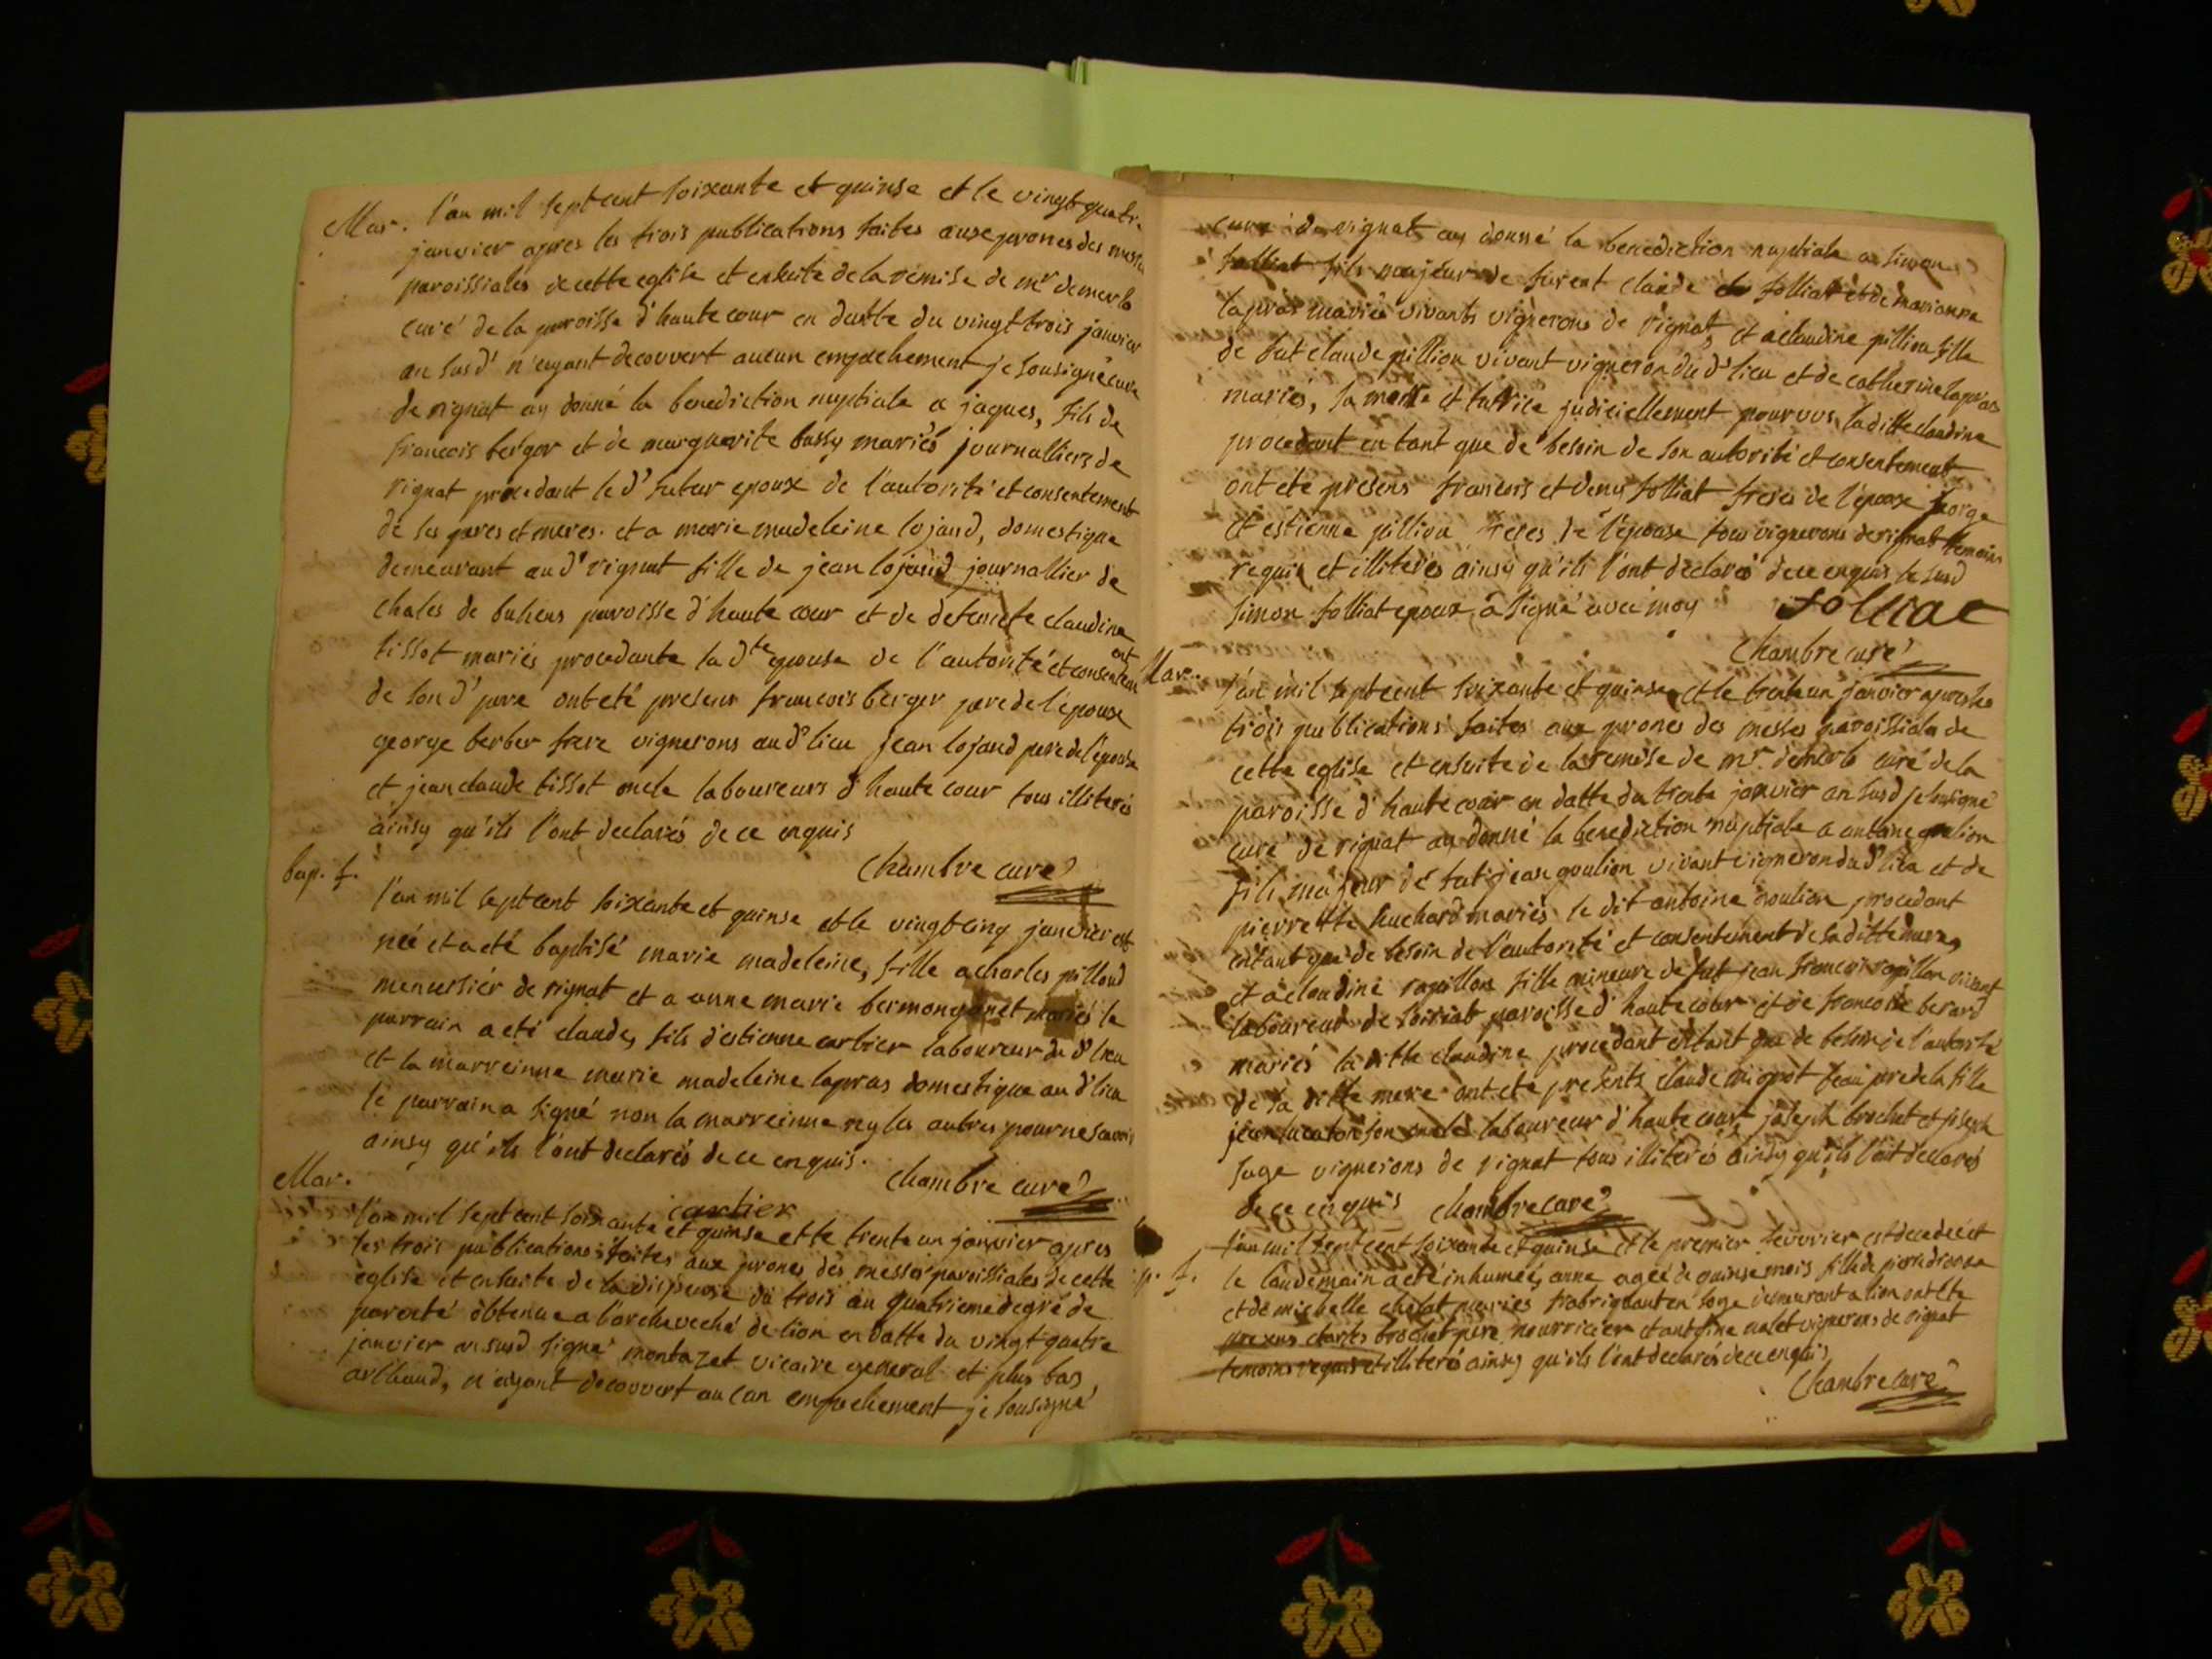 Mar. l'an mil sept cent soixante et quinse et le vingt quatr.
janvier apres les trois publications faites aux prones des messes
paroissiales de cette eglise et ensuite de la remise de mr demerlo
curé de la paroisse d'haute cour en datte du vingt trois janvier
an susd' n'ayant decouvert aucun empachement je sousigné curé
de rignat ay donné la benediction nuptiale a jaques, fils de
francois berger et de marguerite bussy mariés journalliers de
rignat procedant le d' futur epoux de l'autorité et consentement
de ses peres et meres. et a marie madeleine lojand, domestique
demeurant au d' rignat fille de jean lojand journallier de
chales de buhens paroisse d'haute cour et de claudine
tissot mariés procedante la dte epouse de l'autorité et consentem ent
de son d' pere ont eté presens francois berger pere de l'epoux
george berber frere vignerons aud' lieu jean lojand pere de l'epouse
et jean claude tissot oncle laboureurs d'haute cour tous illiterés
ainsy qu'ils l'ont declarés de ce enquis
Chambre curé
bap. f. l'an mil sept cent soixante et quinse et le vingt cinq janvier est
née et a eté baptisé marie madeleine, fille a charles pilloud
menussier de rignat et a anne marie bermongonet mariés le
parrain a eté claude, fils d'estienne cartier laboureur du d' lieu
et la marreinne marie madeleine lapras domestique au d' lieu
le parrain a signé non la marreinne ny les autres pour ne scavoir
ainsy qu'ils l'ont declarés de ce enquis.
Chambre curé
cartier
Mar. l'an mil sept cent soixante et quinse et le trente un janvier apres
les trois publications faites aux prones des messes paroissiales de cette
eglise et ensuite de la dispense du trois au quatrieme degré de
parenté obtenue a l'archeveché de lion en datte du vingt quatre
janvier an susd signé montazet vicaire general et plus bas
arlhaud, n'ayant decouvert aucun empechement je sousigné
curé de rignat ay donné la benediction nuptiale a simon
folliat fils majeur de furent claude folliat et de marianne
lapras mariés vivants vignerons de rignat, et a claudine pillion fille
de fut claude pillion vivant vigneron du d' lieu et de catherine lapras
mariés, sa mere et tutrice judiciellement pourvus, la ditte claudine
procedant en tant que de besoin de son autorité et consentement
ont eté presens francois et denis folliat freres de l'epoux george
et estienne pillion freres de l'epouse tous vignerons de rignat temoins
requis et illiterés ainsy qu'ils l'ont declarés de ce enquis le susd
simon folliat epoux a signé avec moy folliat
Chambre curé
Mar. l'an mil sept cent soixante et quinse et le trente un janvier apres les
trois publications faites aux prones des messes paroissiales de
cette eglise et ensuite de la remise de mr. demerlo curé de la
paroisse d'haute cour en datte du trente janvier an susd je sousigné
curé de rignat ay donné la benediction nuptiale a antoine goulion
fils majeur de fut jean goulion vivant vigneron du d' lieu et de
pierrette huchard mariés le dit antoine goulion procedant
entant que de besoin de l'autorité et consentement de sa ditte mere,
et a claudine rapillon fille mineure de fut jean francois rapillon vivant
laboureur de soiriat paroisse d'haute cour et de francoise berard
mariés la ditte claudine procedant entant que de besoin de l'autorité
de sa ditte mere ont eté presents claude mignot beau pere de la fille
jean son oncle laboureur d'haute cour, joseph brochet et joseph
sage vignerons de rignat tous illiterés ainsy qu'ils l'ont declarés
de ce enquis Chambre curé
l'an mil sept cent soixante et quinse et le premier fevrier est decedée et
p. f. le landemain a eté inhumée, anne ageé de quinse mois fille de pierre
et de michelle chelat mariés frabriquant en soye demeurant a lion ont ete
presens charles brochet pere nourricier et antoine nalet vignerons de rignat
temoins requis et illiterés ainsy qu'ils l'ont declarés de ce enquis
Chambre curé